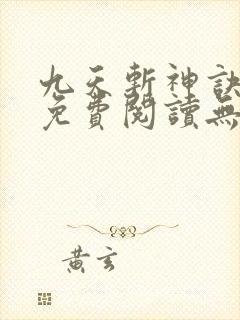 九天斬神訣
免費閱讀無
黃玄